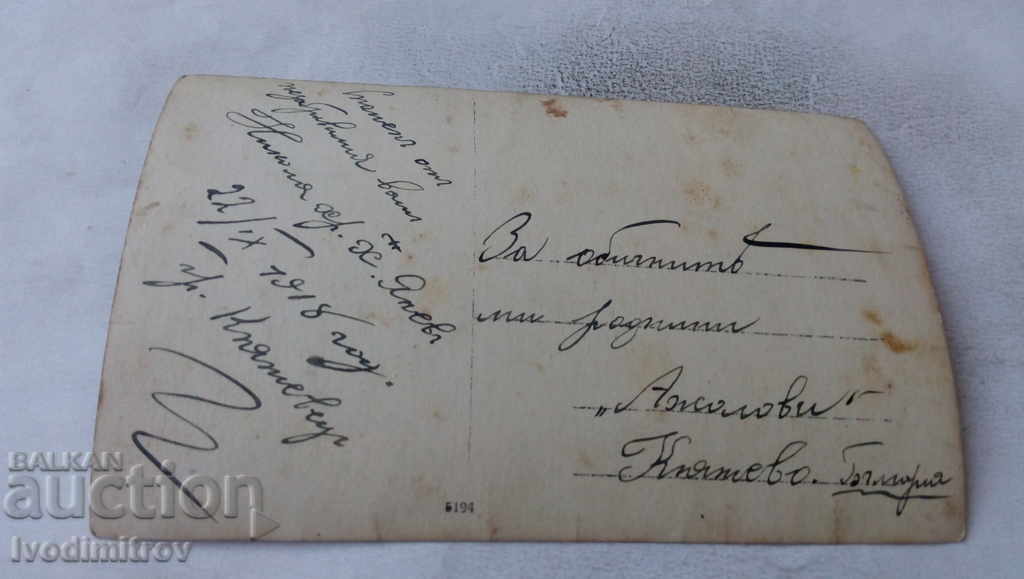 спомен отъ
незабравимия вашъ
Никола хр. х. Яневъ
22/IX 1918 год.
гр. Княжевацъ
За обичнитѣ
ми роднини
"Ажалови"
Княжево. България
5194
BALKAN
auction
Ivodimitrov